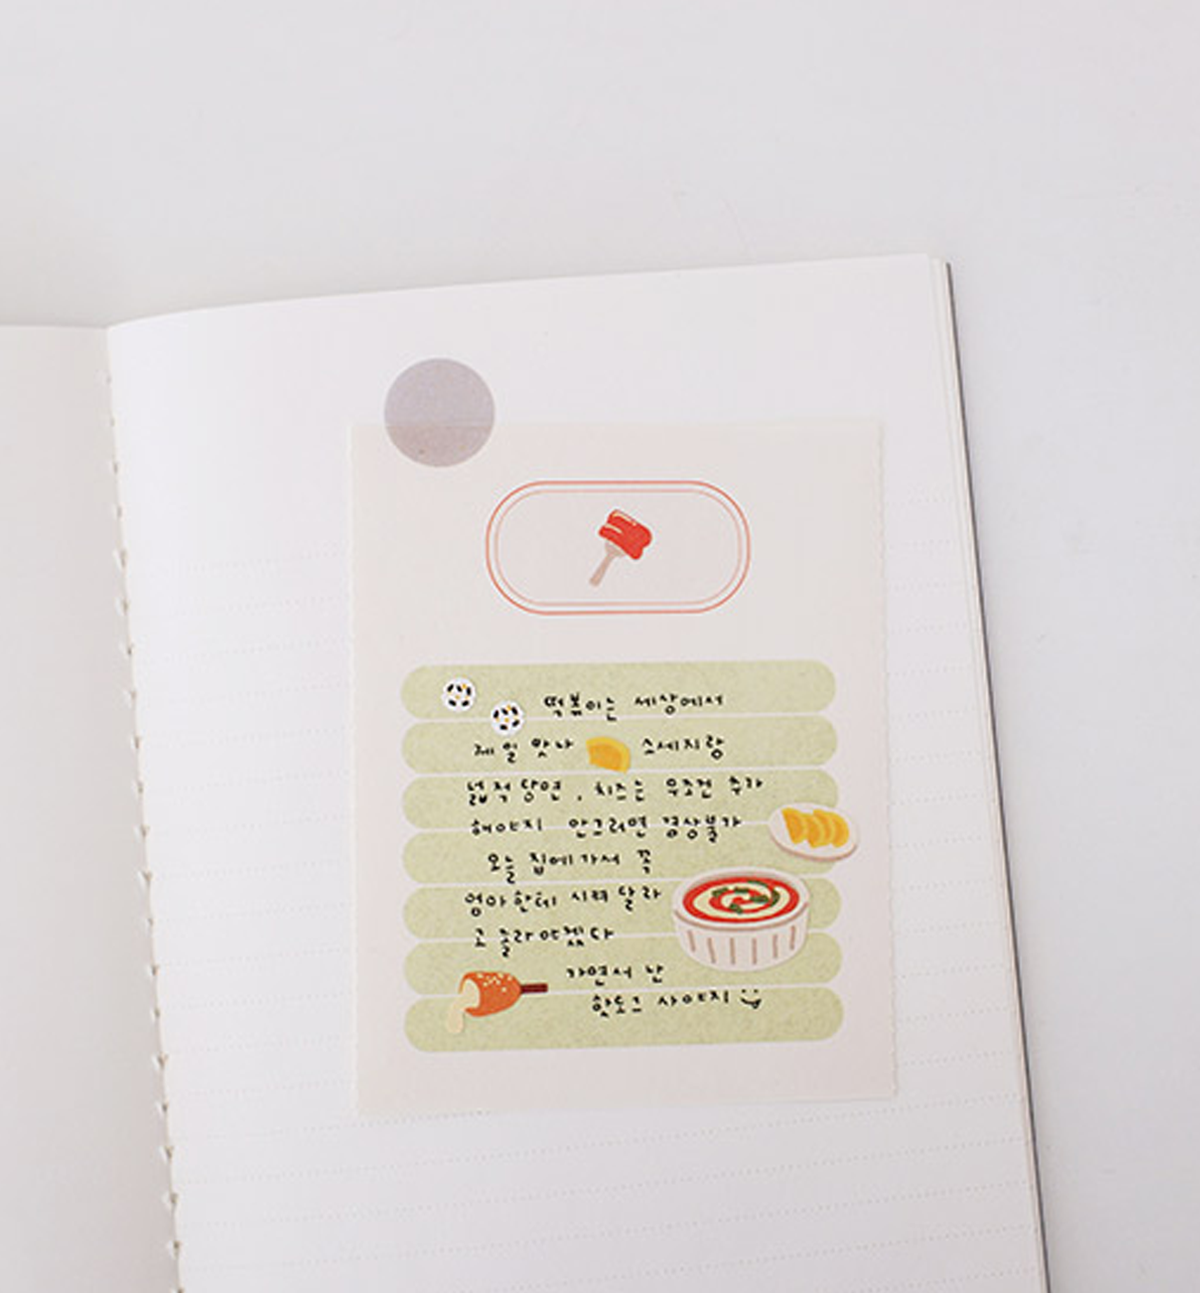 떡볶이는 세상에서
제일 맛나 소세지랑
넓적당면, 치즈는 무조건 추가
해야지 안그러면 겸상불가
오늘 집에 가서 꼭
엄마한테 시켜달라
고 졸라야겠다
가면서 난
핫도그 사야지